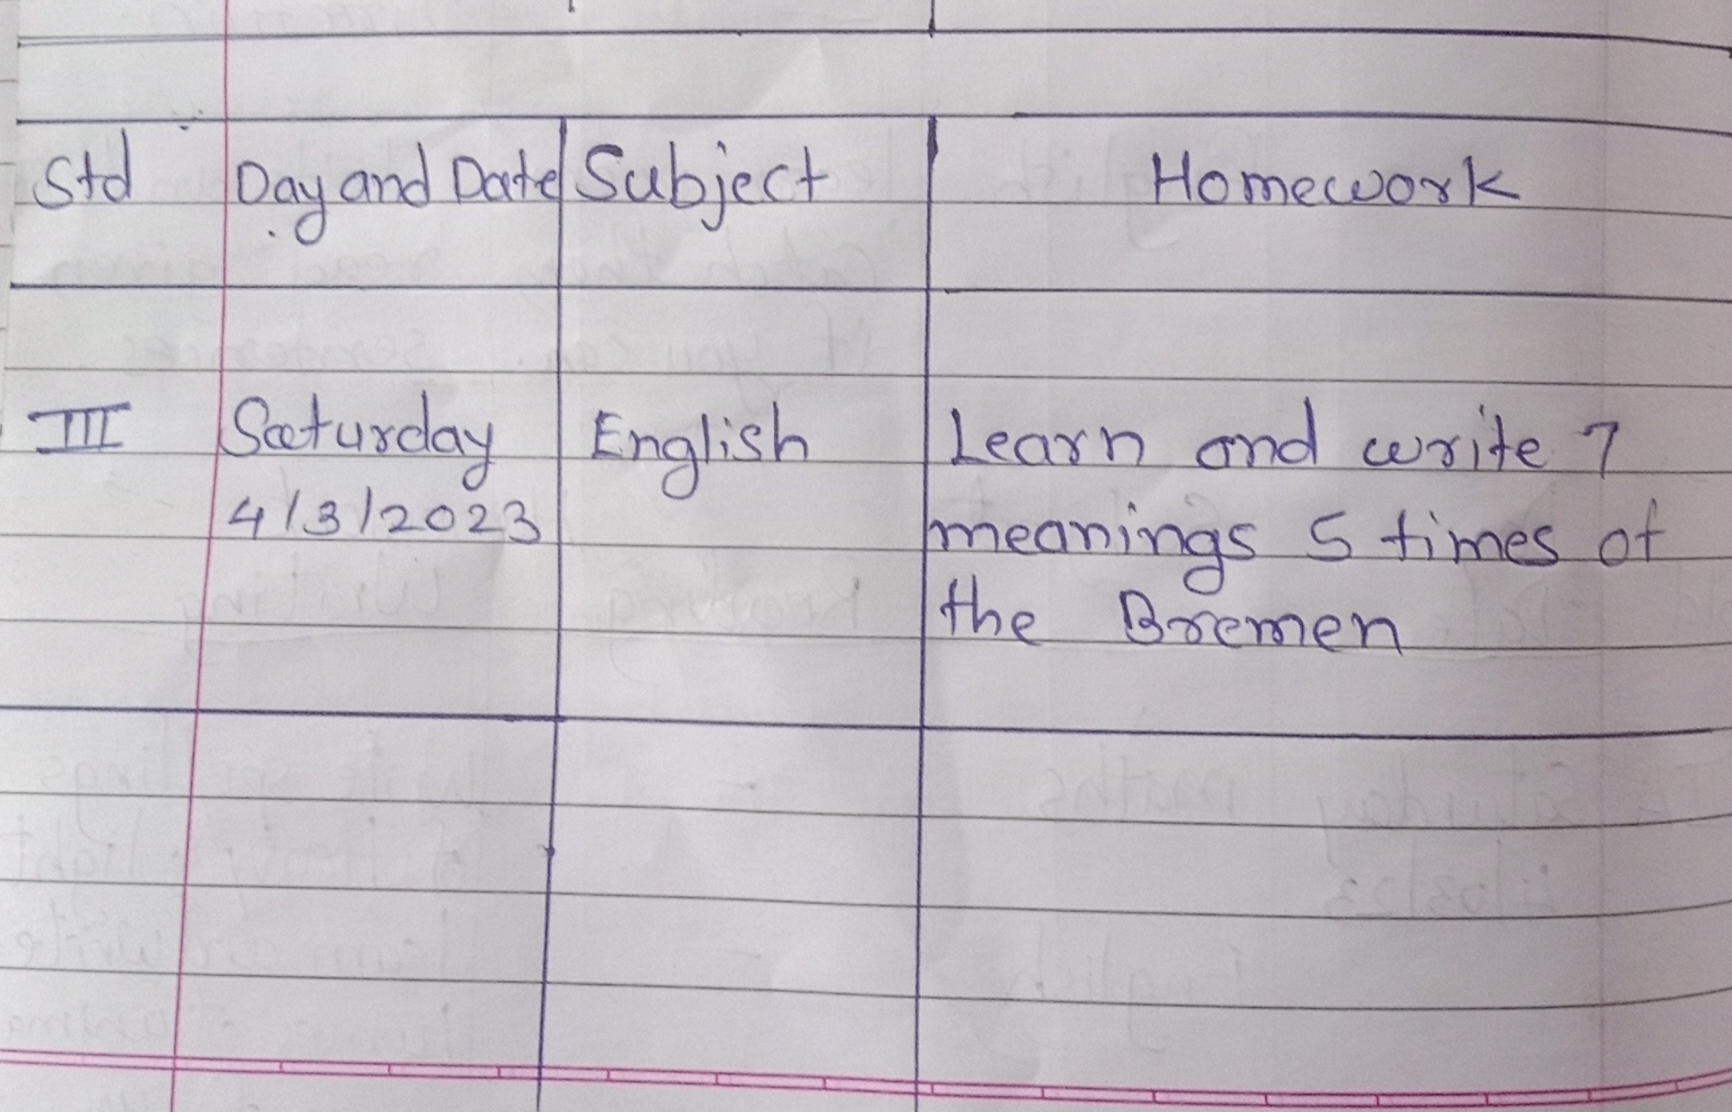 Std Day and Date Subject Homework
III Saturday English Learn and write 7
4/3/2023 meanings 5 times of
the Bremen